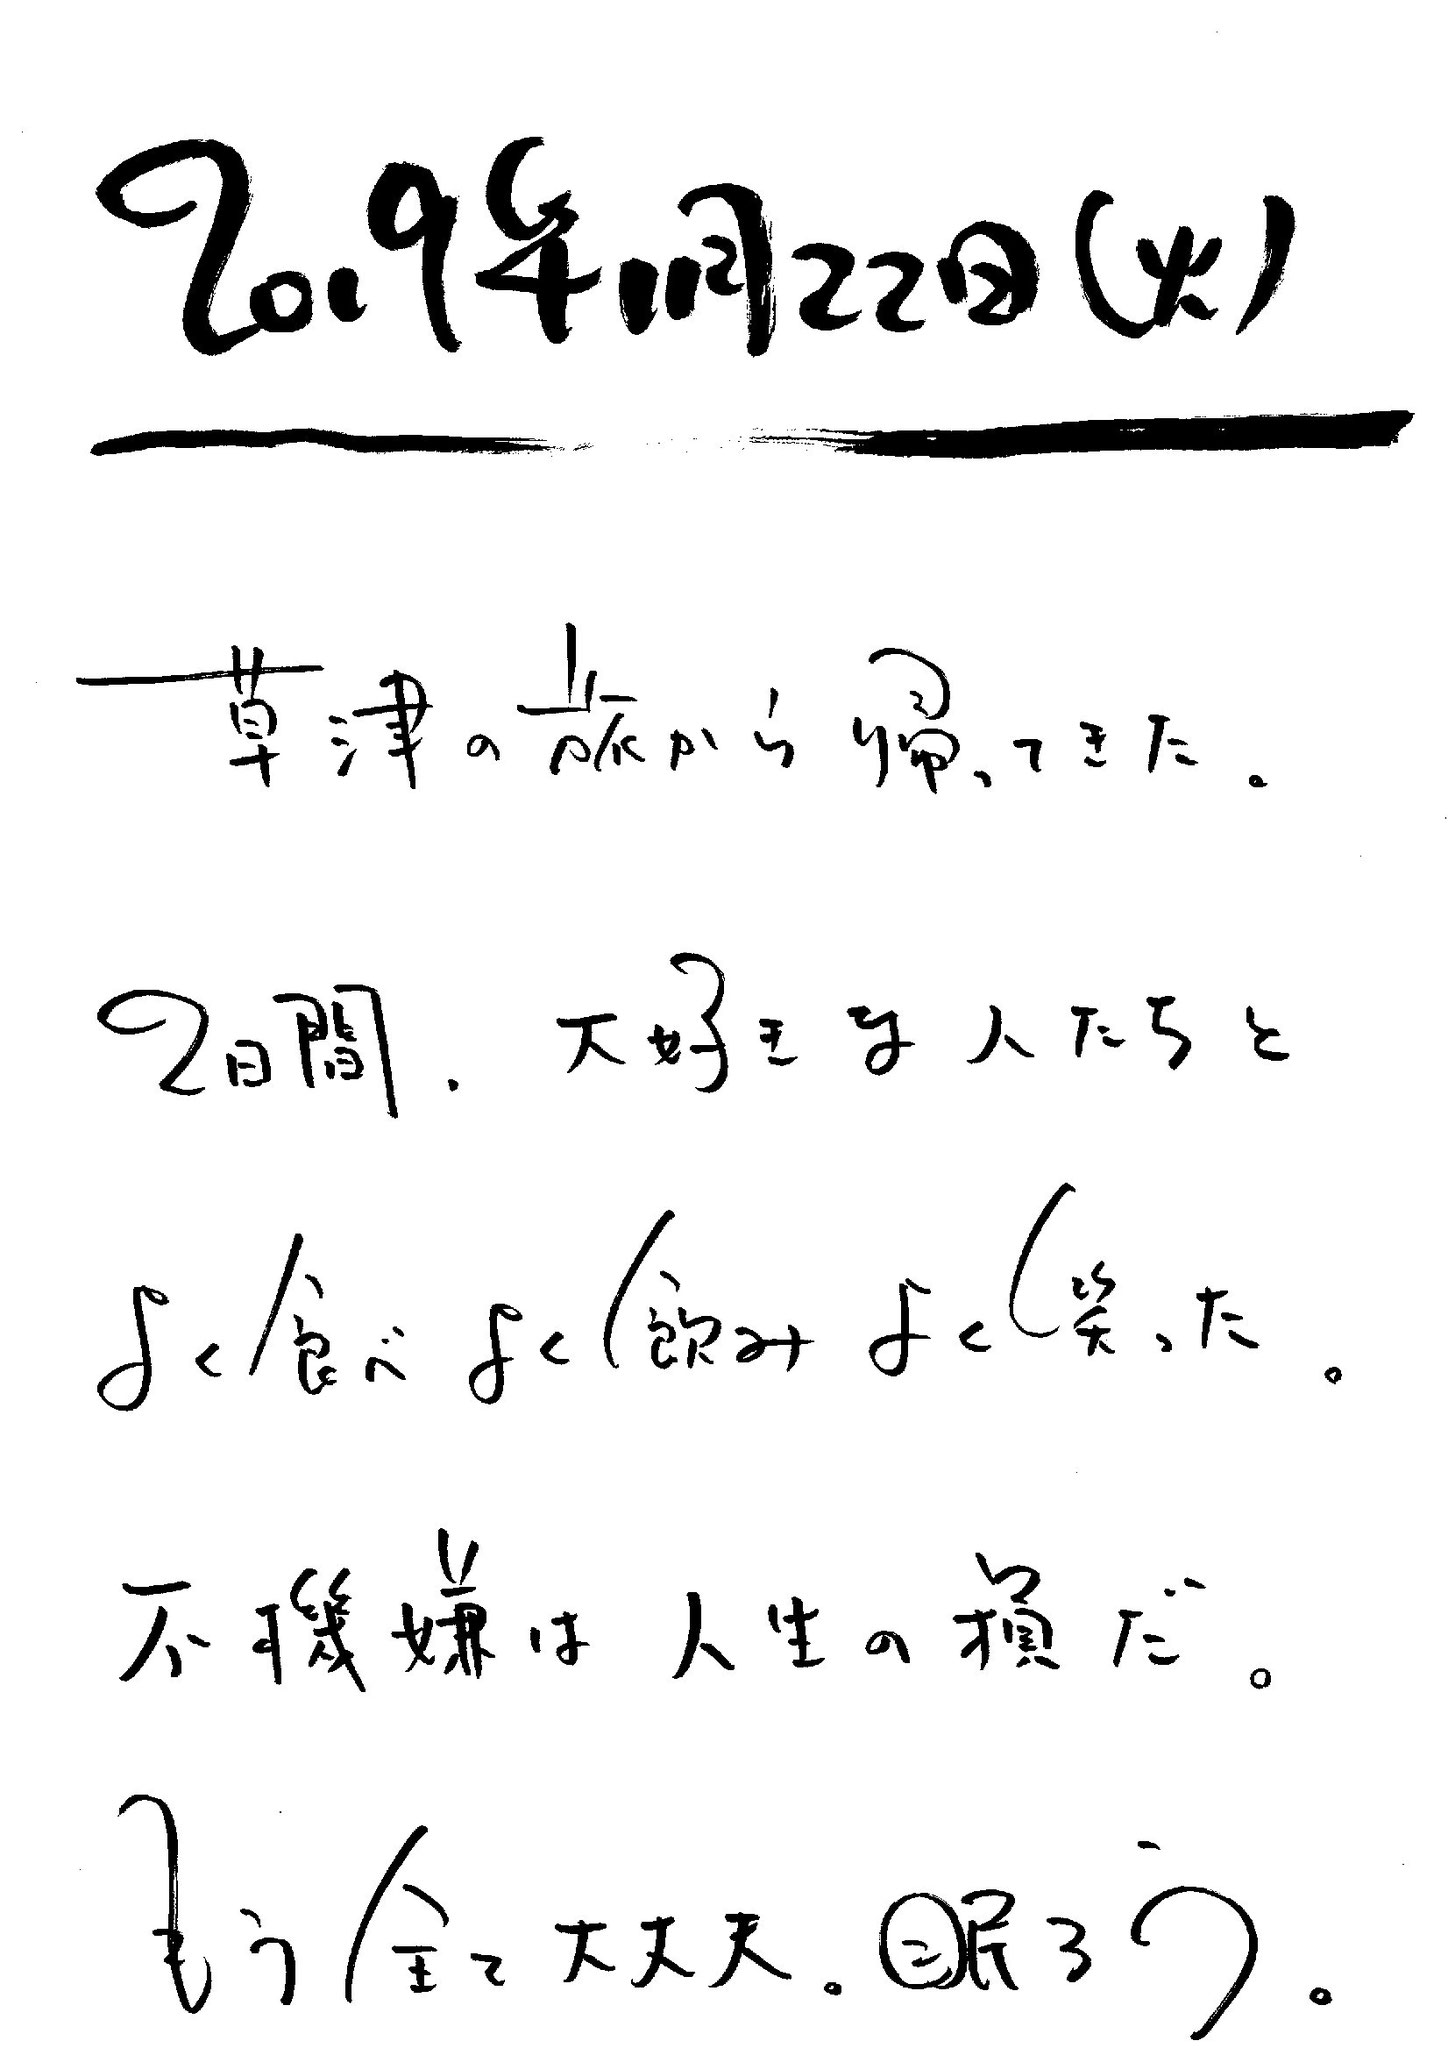 2019年1月22日(火)
草津の旅から帰ってきた。
2日間、大好きな人たちと
よく食べよく飲みよく笑った。
不機嫌は人生の損だ。
もう全て大丈夫。眠ろう。